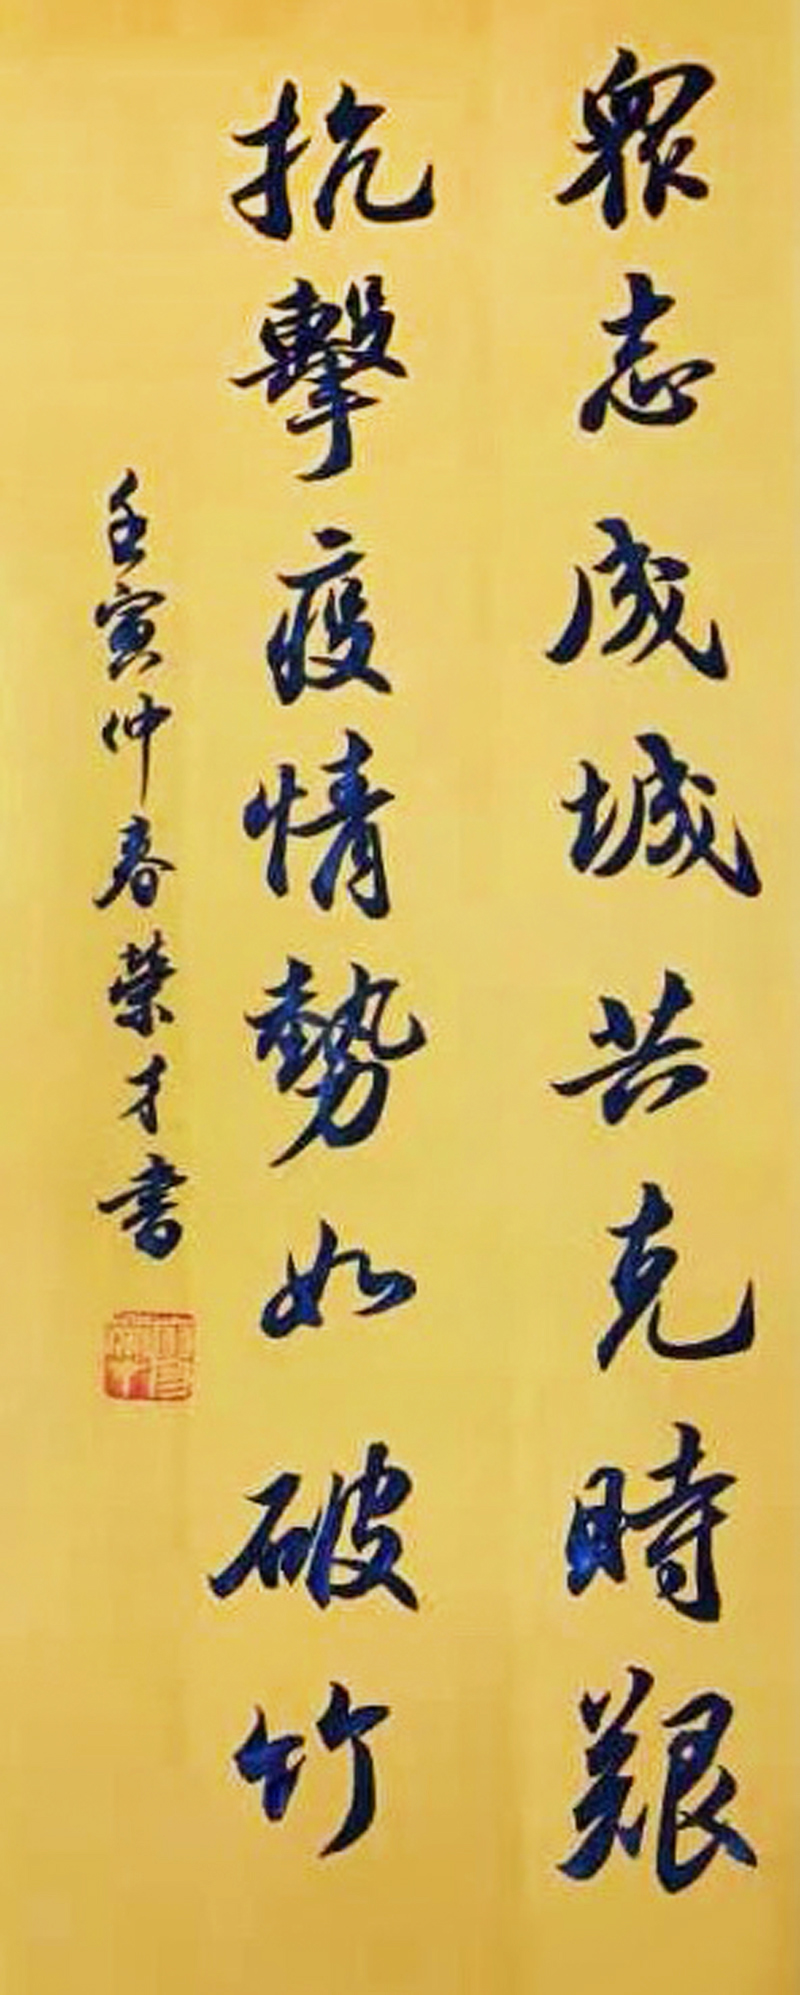 眾志成城共克時艱
抗擊疫情勢如破竹
壬寅仲春荣才书